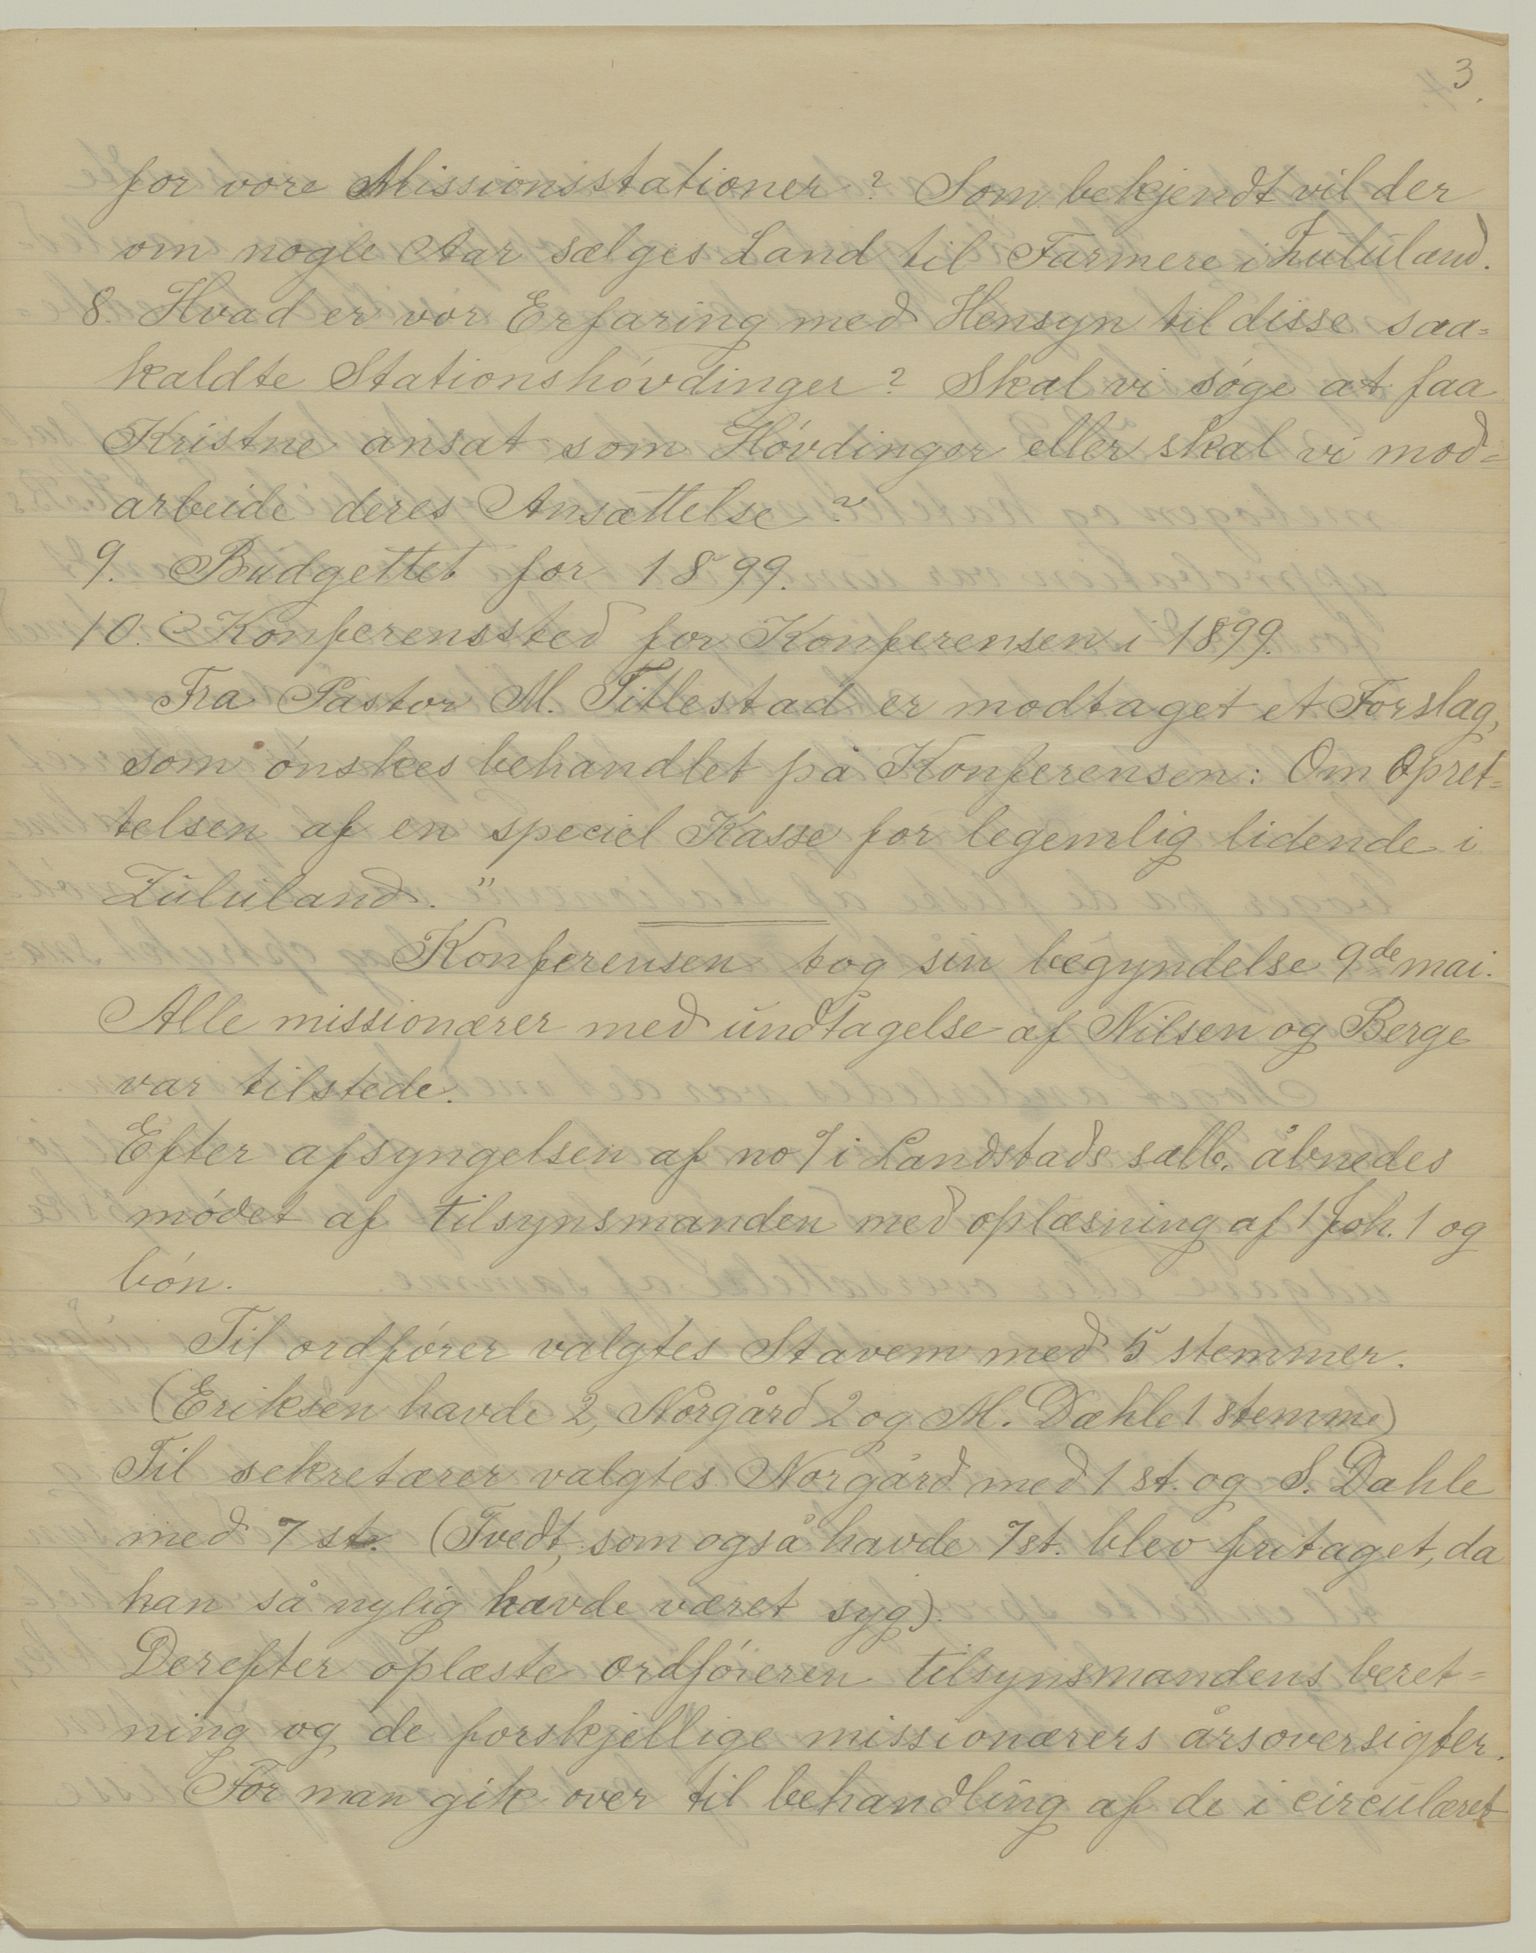 3.
for vore Missionsstationer? Som bekjendt vil der
om nogle Aar sælges Land til Farmere i Zululand.
8. Hvad er vor Erfaring med Hensyn til disse saa=
kaldte Stationshóvdinger? Skal vi sóge at faa
Kristne ansat som Hóvdinger eller skal vi mod=
arbeide deres Ansættelse?
9. Budgettet for 1899.
10. Konferenssted for Konferensen i 1899.
Fra Pastor M. Titlestad er modtaget et Forslag,
som ónskes behandlet på Konferensen: Om Opret=
telsen af en speciel Kasse for legemlig lidende i
Zululand."
Konferensen tog sin begyndelse 9de mai.
Alle missionærer med undtagelse af Nilsen og Berge
var tilstede.
Efter afsyngelsen af no 7 i Landstads salb. åbnedes
módet af tilsynsmanden med oplæsning af 1 Joh. 1 og
bón.
Til ordfórer valgtes Stavem med 5 stemmer.
(Eriksen havde 2, Norgård 2 og M. Dahle 1 stemme)
Til sekretærer valgtes Norgård med 1 st. og S. Dahle
med 7 st. (Tvedt, som også havde 7 st. blev fritaget, da
han så nylig havde været syg).
Derefter oplæste ordfóreren tilsynsmandens beret=
ning og de forskjellige missionærers årsoversigter.
Fór man gik over til behandling af de i circulæret